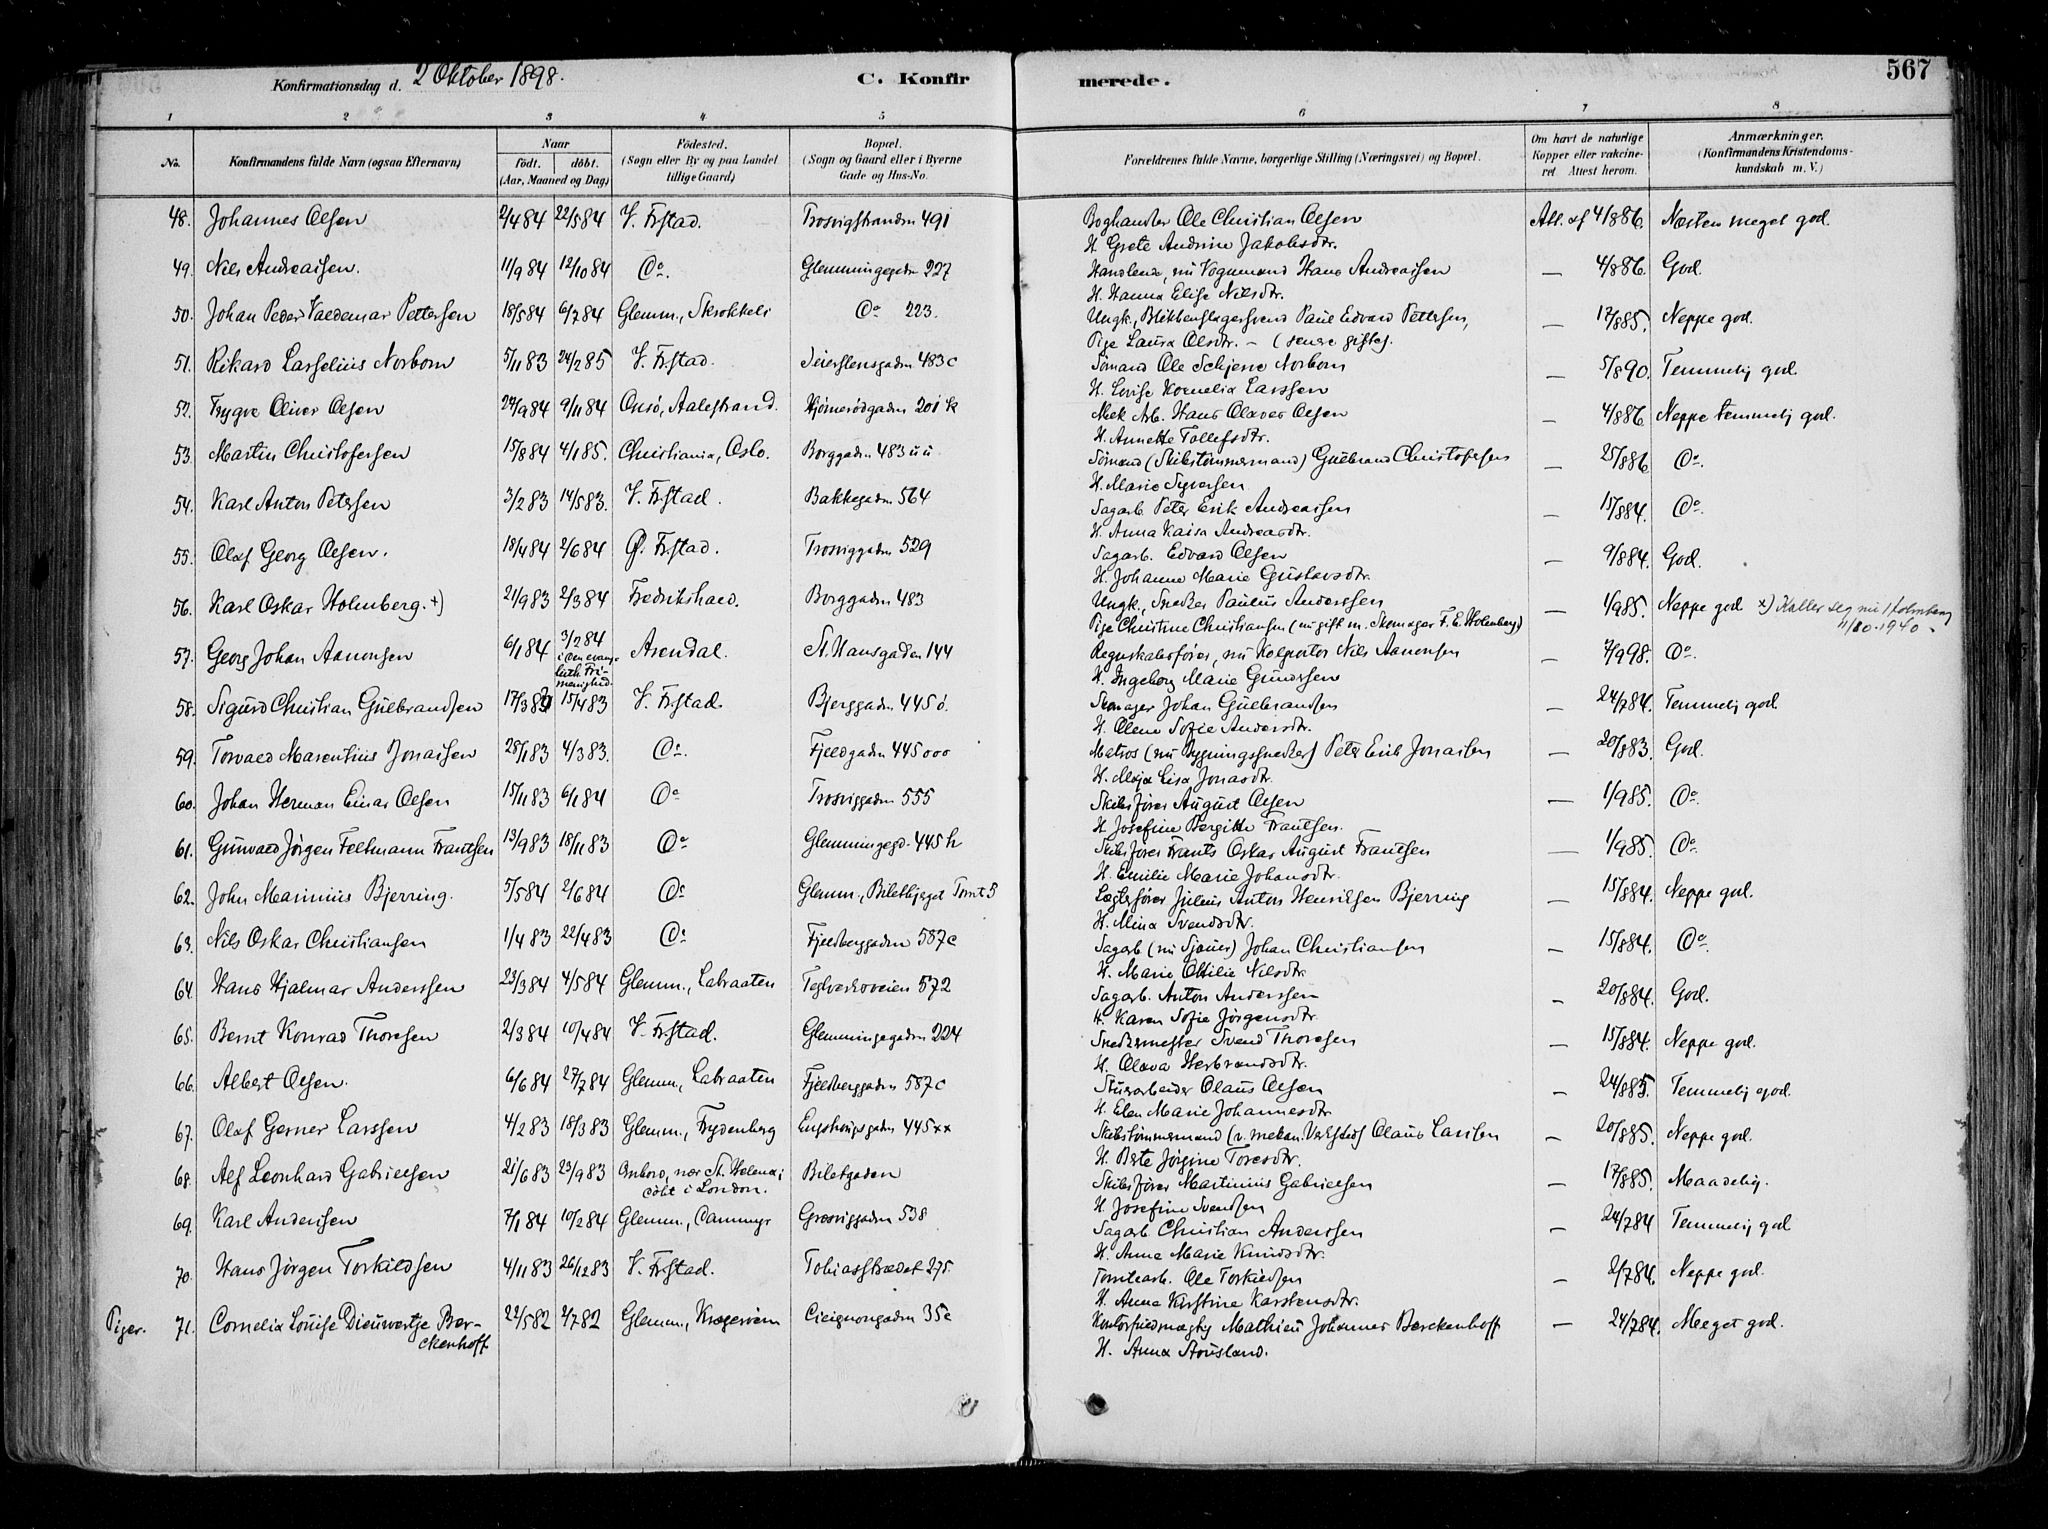 Konfirmationsdag d. 2 Oktober 1898. C. Konfirmerede. 567
1 2 3 4 5 6 7 8
No. Konfirmandens fulde Navn (ogsaa Efternavn) Naar født. døbt. (Aar, Maaned og Dag) Fødested. (Sogn eller By og paa Landet tillige Gaard) Bopæl. (Sogn og Gaard eller i Byerne Gade og Hus-No. Forældrenes fulde Navne, borgerlige Stilling (Næringsvei) og Bopæl. Om havt de naturlige Kopper eller vakcineret Attest herom. Anmærkninger. (Konfirmandens Kristendomskundskab m. V.)
48. Johannes Olsen 2/4 84 22/5 84 V. Fr.stad. Trosvigstranden 491 Boghandler Ole Christian Olsen Att. af 4/8 86. Næsten meget god.
H. Grete Andrine Jakobsdtr.
49. Nils Andreassen. 11/9 84 12/10 84 Do. Glemmingegadn 227 Handlende, nu Vognmand Hans Andreassen — 4/8 86. God.
H. Hanna Elise Nilsdtr.
50. Johan Peder Valdemar Pettersen 18/5 84 6/7 84 Glemm., Skrokkeli Do 223. Ungk., Blikkenslagersvend Paul Edvard Pettersen, — 17/8 85. Neppe god.
Pige Laura Olsdtr. – (senere gifte).
51. Rikard Larselius Norbom 5/11 83 24/2 85 V. Fr.stad. Seierstensgadn 483c Sömand Ole Schjerve Norbom — 5/8 90. Temmelig god.
H. Lovise Kornelia Larssen
52. Trygve Oliver Olsen 27/9 84 9/11 84 Onsö, Aalestrand. Hjörnerödgaden 201k Mek. Arb. Hans Olaves Olsen — 4/8 86 Neppe temmelig god.
H. Annette Tollefsdtr.
53. Martin Christofersen 15/8 84 4/1 85. Christiania, Oslo. Borggaden 483uu Sömand (Skibstömmermand) Gulbrand Christofersen — 25/8 86 Do.
H. Marie Syversen
54. Karl Anton Petersen 3/2 83 14/5 83. V. Fr.stad. Bakkegaden 564 Sagarb. Peter Erik Andreassen — 15/8 84. Do.
H. Anna Kaisa Andreasdtr.
55. Olaf Georg Olsen. 18/4 84 2/6 84 Ö. Fr.stad. Trosviggaden 529 Sagarb. Edvard Olsen — 9/8 84. God.
H. Johanne Marie Gustavsdtr.
56. Karl Oskar Holmberg. +) 21/9 83 2/3 84 Fredrikshald. Borggaden 483 Ungk., Snedker Paulus Anderssen — 1/9 85. Neppe god x) Kaller seg nu Holmberg
Pige Christine Christiansen (nu gift m. Skomager F. E. Holmberg) 11/10-1940.
57. Georg Johan Aanonsen 6/1 84 3/2 84 i den evang. luth. Fri-menighed. Arendal. St. Hansgaden 144 Regnskabsfører, nu Kolportör Nils Aanonsen — 7/9 98. Do.
H. Ingeborg Marie Gundersen
58. Sigurd Christian Gulbrandsen 17/3 83 15/4 83 V. Fr.stad. Bjerggaden 445ö. Skomager Johan Gulbrandsen — 24/7 84. Temmelig god
H. Olene Sofie Andersdtr.
59. Torvald Marentius Jonassen 28/1 83 4/3 83. Do. Fjeldgaden 445ooo Matros (nu Bygningssnedker) Peter Erik Jonassen — 20/8 83. God.
H. Maja Lisa Jonasdtr.
60. Johan Herman Einar Olsen 15/11 83 6/1 84 Do Trosviggaden 555 Skibsfører August Olsen — 1/9 85. Do.
H. Josefine Bergitte Frantsen.
61. Gunvald Jörgen Feltmann Frantsen 13/9 83 18/11 83 Do Glemmingegd. 445h Skibsfører Frants Oskar August Frantsen — 1/9 85. Do.
H. Emilie Marie Johansdtr.
62. John Marinius Bjerring. 5/5 84 2/6 84 Do Glemm., Biletbjerget Tomt 5 Lægterfører Julius Anton Henriksen Bjerring — 15/8 84. Neppe god.
H. Mina Svendsdtr.
63. Nils Oskar Christiansen 1/4 83 22/4 83 Do Fjeldberggaden 587c Sagarb. (nu Sjauer) Johan Christiansen — 15/8 84. Do.
H. Marie Ottilie Nilsdtr.
64. Hans Hjalmar Anderssen 23/3 84 4/5 84 Glemm., Labraaten Teglverksveien 572 Sagarb. Anton Anderssen — 20/8 84. God.
H. Karen Sofie Jörgensdtr.
65. Bernt Konrad Thoresen 2/3 84 10/4 84 V. Fr.stad. Glemmingegaden 224 Snedkermester Svend Thoresen — 15/8 84. Neppe god.
H. Olava Herbrandsdtr.
66. Albert Olsen. 6/6 84 27/7 84 Glemm., Labraaten Fjeldberggaden 587c Stuerarbeider Olaus Olsen — 24/8 85. Temmelig god.
H. Elen Marie Johannesdtr
67. Olaf Gerner Larssen 4/2 83 18/3 83 Glemm., Frydenberg Engshougsgaden 445xx Skibstömmermand (v. mekan. Verksted) Olaus Larssen — 20/8 85. Neppe god.
H. Berte Jörgine Toresdtr.
68. Alf Leonhard Gabrielsen 21/6 83 23/9 83 Ombord, nær St. Helena; döbt i London. Biletgaden Skibsfører Martinius Gabrielsen — 17/8 85. Maadelig.
H. Josefine Svendsen
69. Karl Anderssen 7/1 84 10/2 84 Glemm., Dammyr Græsviggaden 538 Sagarb. Christian Anderssen — 24/7 84 Temmelig god
H. Anna Marie Knudsdtr.
70. Hans Jörgen Torkildsen 4/11 83 26/12 83 V. Fr.stad. Tobiasstrædet 275. Tomtearb. Ole Torkildsen — 2/7 84 Neppe god.
H. Anna Kirstine Karstensdtr.
Piger. 71. Cornelia Louise Dieuwertje Bær-ckenhoff 22/5 82 2/7 82 Glemm., Kragerøien Cicignongaden 35e Kontorfuldmægtig Mathieu Johannes Bærckenhoff — 24/7 84. Meget god.
H. Anna Aousland.